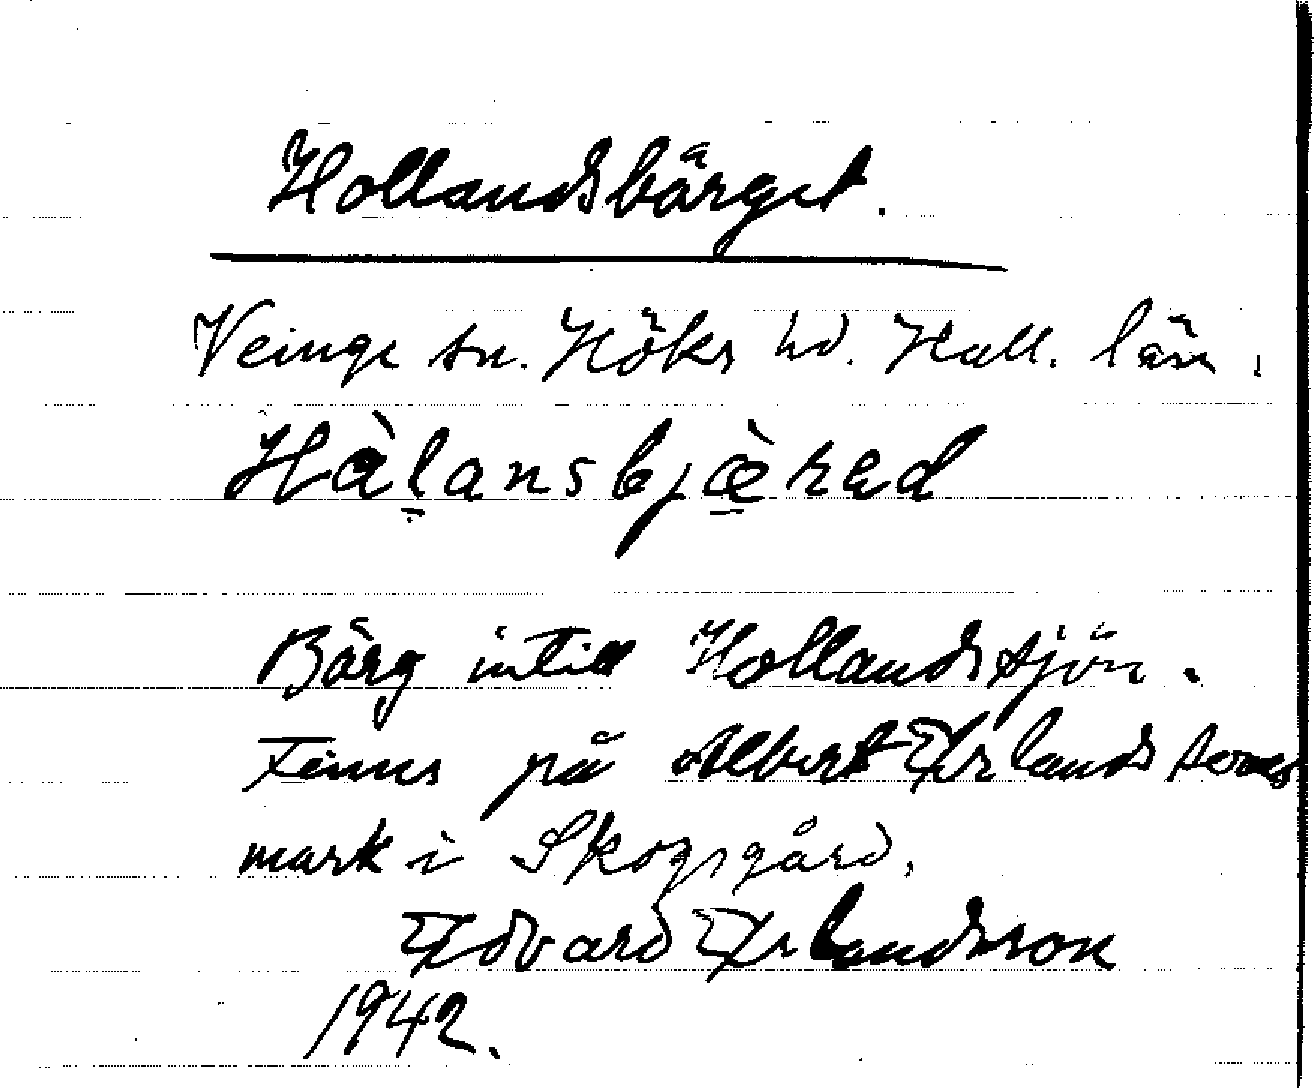 Hollandsbärget.
Veinge sn. Höks hd. Hall. län.
Hàlansbjæ̀rad
Bärg intill Hollandssjön.
Finns på Albert Erlandssons
mark i Skogsgård.
Edvard Erlandsson
1942.